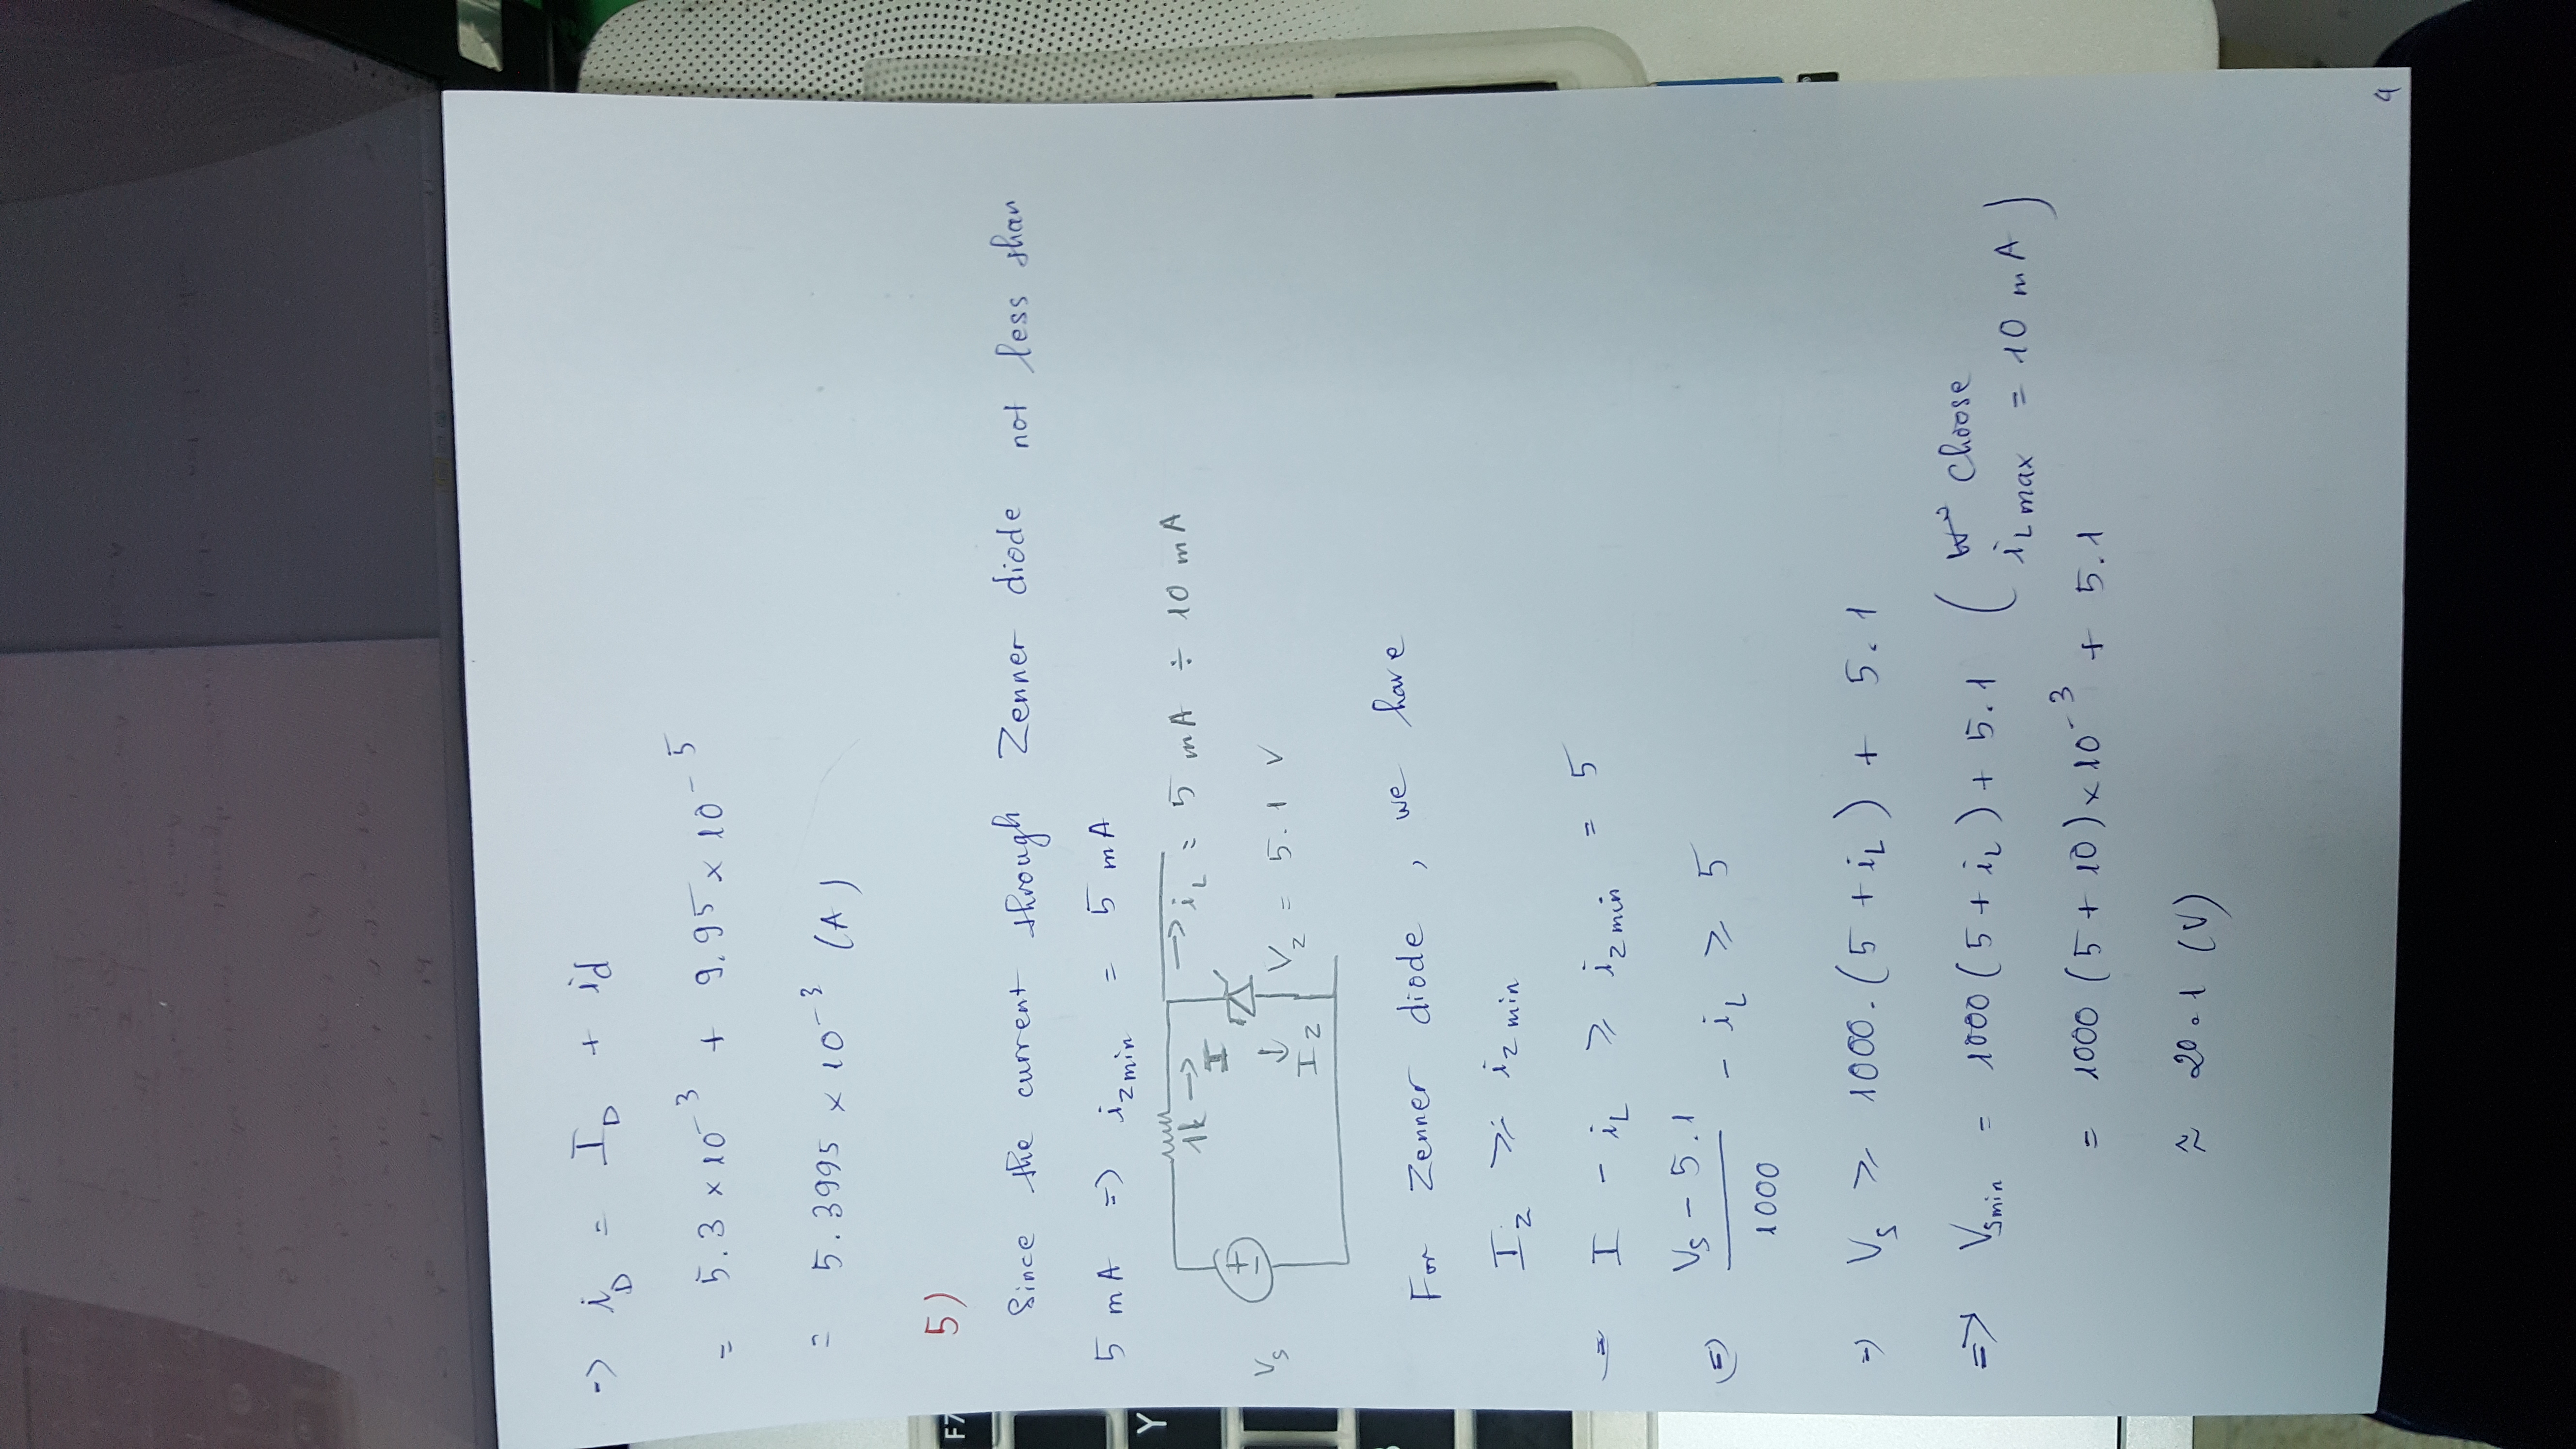 -> i_D = I_D + id
= 5.3 × 10^-3 + 9.95 × 10^-5
= 5.3995 × 10^-3 (A)
5)
Since the current through Zenner diode not less than
5 mA => i_z min = 5 mA
1k -> I
-> i_L = 5 mA ÷ 10 mA
V_s
+
-
↓ I_z
V_z = 5.1 V
For Zenner diode , we have
I_z ⩾ i_z min
= I - i_L ⩾ i_z min = 5
(=) (V_s - 5.1)/1000 - i_L ⩾ 5
=) V_s ⩾ 1000.(5 + i_L) + 5.1
=> V_s min = 1000 (5 + i_L) + 5.1 ( choose
i_L max = 10 mA )
= 1000 (5 + 10) × 10^-3 + 5.1
≈ 20.1 (V)
4
F7
Y